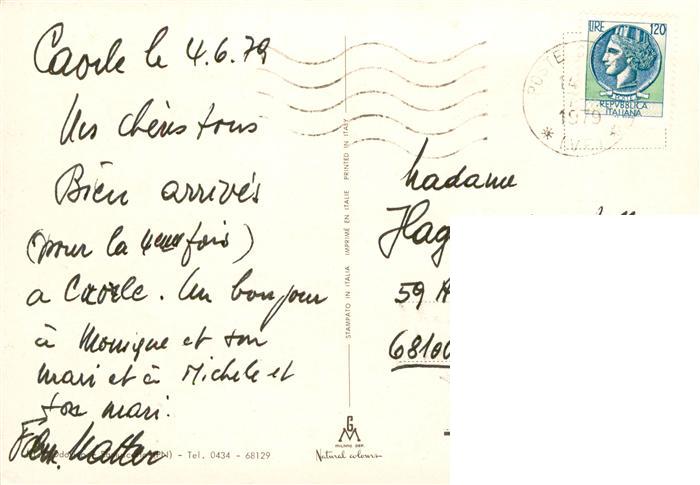 Caorle le 4.6.79
Mes chéris tous
Bien arrivés
(pour la 4eme fois)
a Caorle. Un bonjour
à Monique et son
mari et à Michele et
son mari.
Fam.
- Tel. 0434 - 68129
STAMPATO IN ITALIA IMPRIMÉ EN ITALIE PRINTED IN ITALY
G
M
MILANO DEP.
Natural colours
LIRE 120
REPVBBLICA
ITALIANA
POSTE
1979
Madame
Hag
59
68100